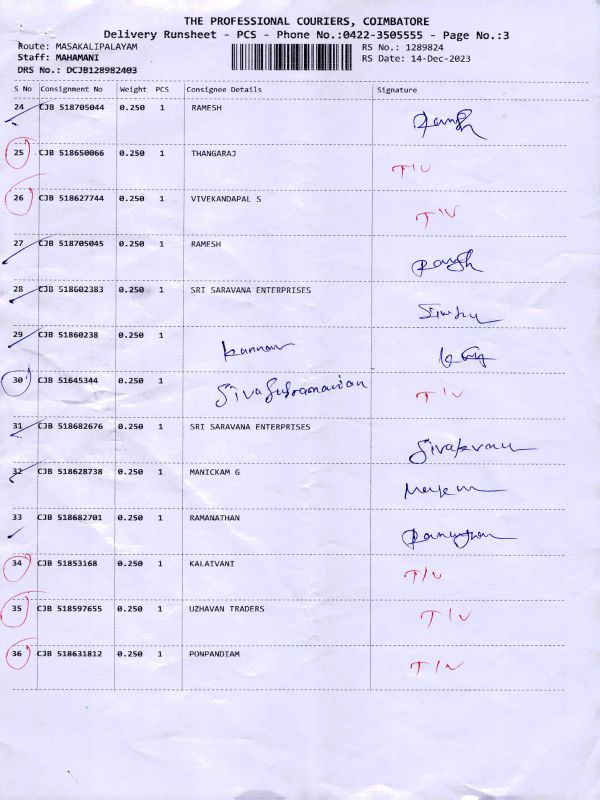 THE PROFESSIONAL COURIERS, COIMBATORE
Delivery Runsheet - PCS - Phone No.:0422-3505555 - Page No.:3
Route: MASAKALIPALAYAM RS No.: 1289824
Staff: MAHAMANI RS Date: 14-Dec-2023
DRS No.: DCJB128982403
S No Consignment No Weight PCS Consignee Details Signature
24 CJB 518705044 0.250 1 RAMESH
25 CJB 518650066 0.250 1 THANGARAJ
T/V
26 CJB 518627744 0.250 1 VIVEKANDAPAL S
T/V
27 CJB 518705045 0.250 1 RAMESH
28 CJB 518602383 0.250 1 SRI SARAVANA ENTERPRISES
29 CJB 51860238 0.250 1
Kannan
30 CJB 51645344 0.250 1
SivaSubramanian T/V
31 CJB 518682676 0.250 1 SRI SARAVANA ENTERPRISES
32 CJB 518628738 0.250 1 MANICKAM G
33 CJB 518682701 0.250 1 RAMANATHAN
34 CJB 51853168 0.250 1 KALAIVANI
T/V
35 CJB 518597655 0.250 1 UZHAVAN TRADERS
T/V
36 CJB 518631812 0.250 1 PONPANDIAM
T/V